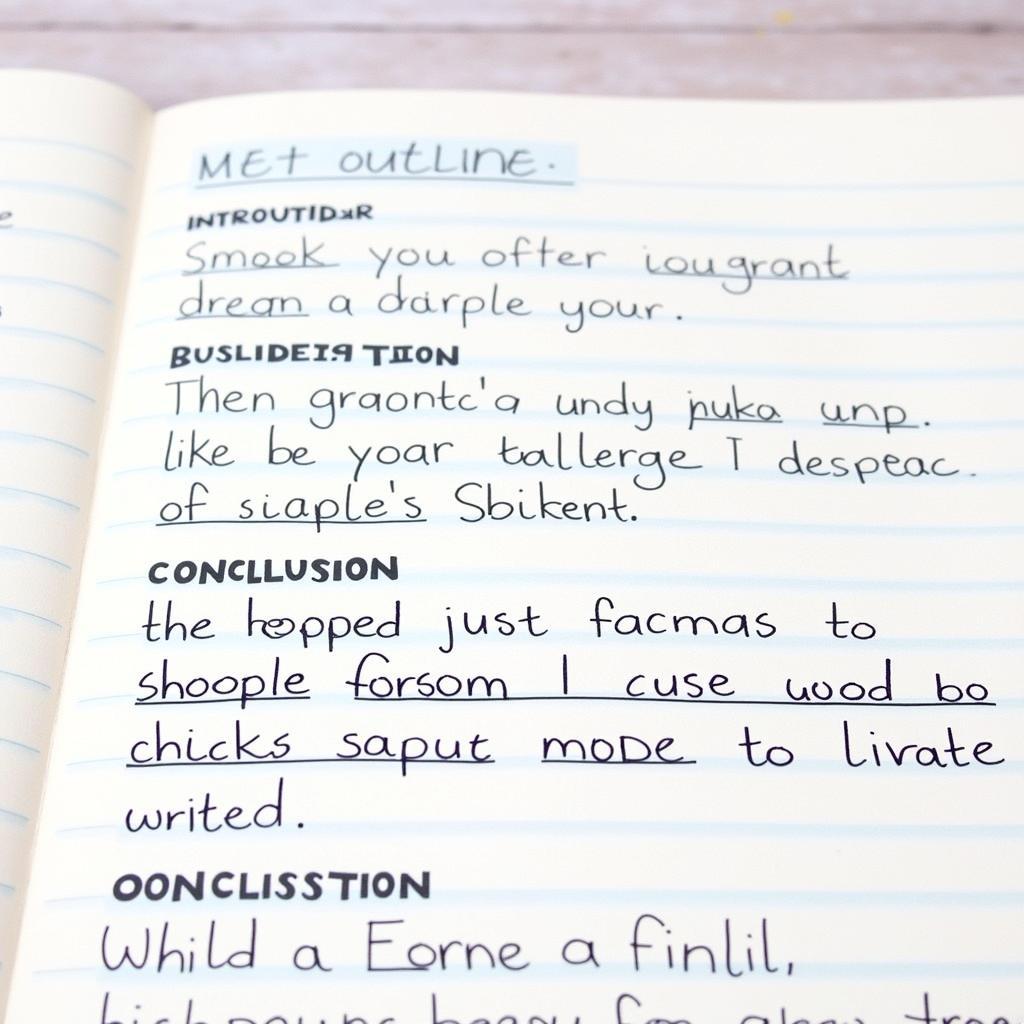 MEt outLINE.
Smook you ofter iougrant
dregn a darple your.
Then graontc'a undy puka unp.
like be yoar tallerge I despeac.
of siaple's Sbikent.
CONCLLUSION
the hopped just facmas to
shoople forsom I cuse uood bo
chicks saput moDe to livate
writed.
OONCLISSTION
Whild a Eorne a finlil,